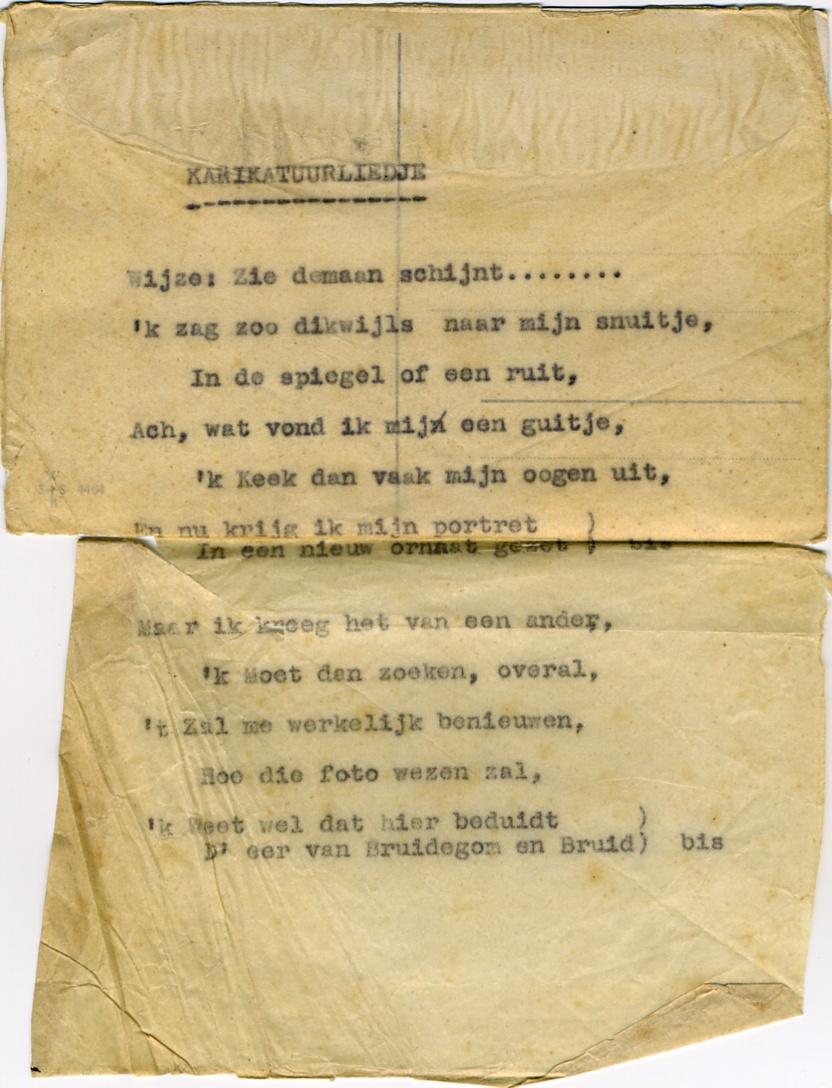 KARIKATUURLIEDJE
-----------------
Wijze: Zie demaan schijnt........
'k zag zoo dikwijls naar mijn snuitje,
In de spiegel of een ruit,
Ach, wat vond ik mij een guitje,
'k Keek dan vaak mijn oogen uit,
En nu krijg ik mijn portret )
In een nieuw ornaat gezet ) bis
Maar ik kreeg het van een ander,
'k Moet dan zoeken, overal,
't Zal me werkelijk benieuwen,
Hoe die foto wezen zal,
'k Weet wel dat hier beduidt )
D' eer van Bruidegom en Bruid) bis